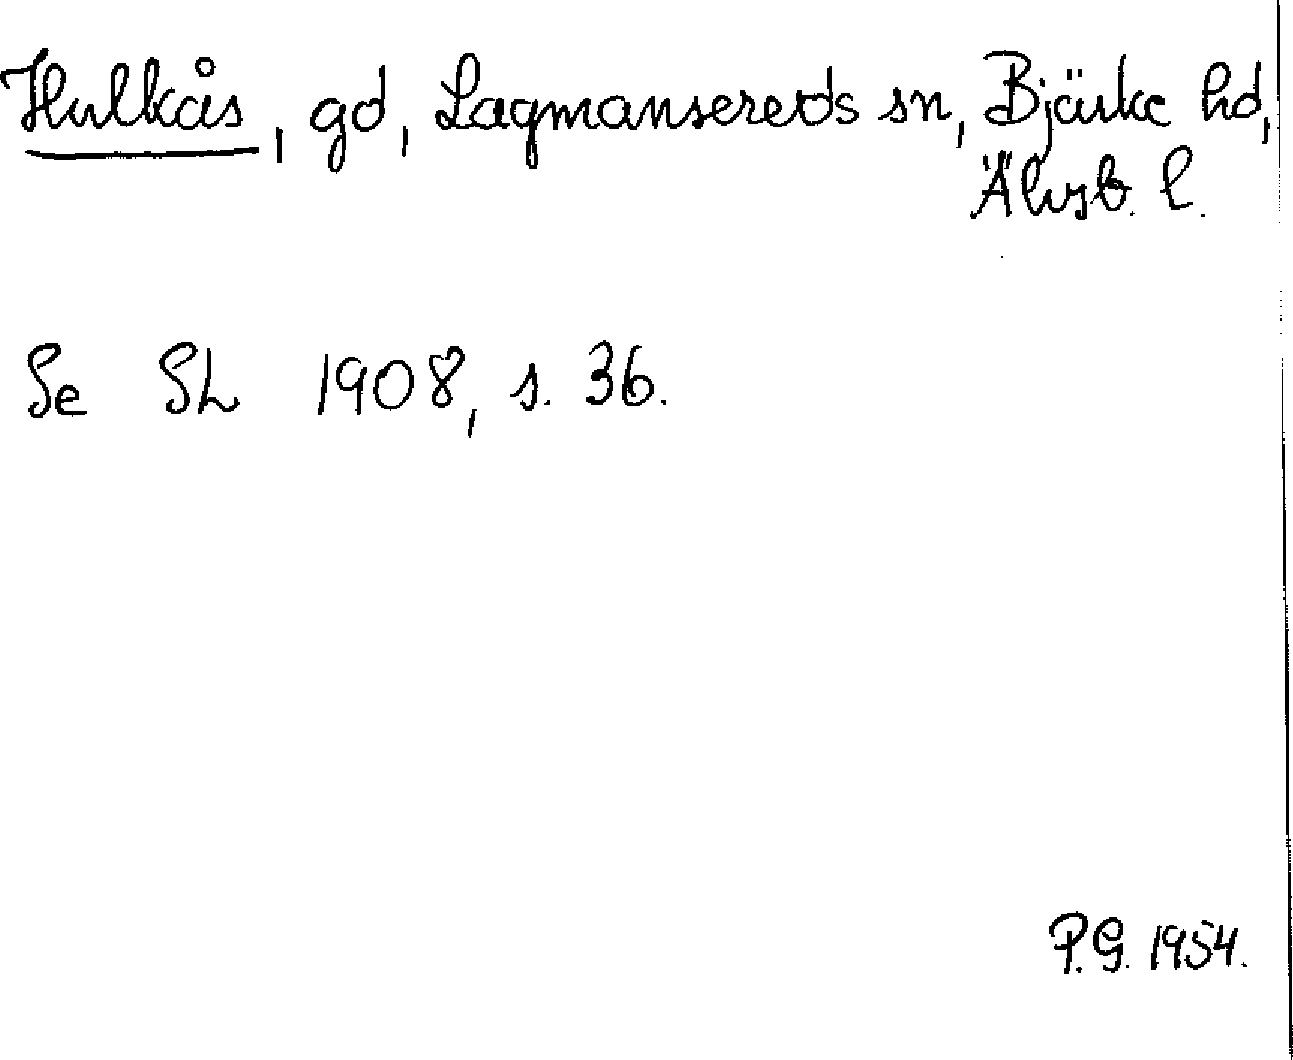 Hulkås, gd, Lagmansereds sn, Bjärke hd,
Älvsb. l.
Se Sh 1908, s. 36.
P.G. 1954.